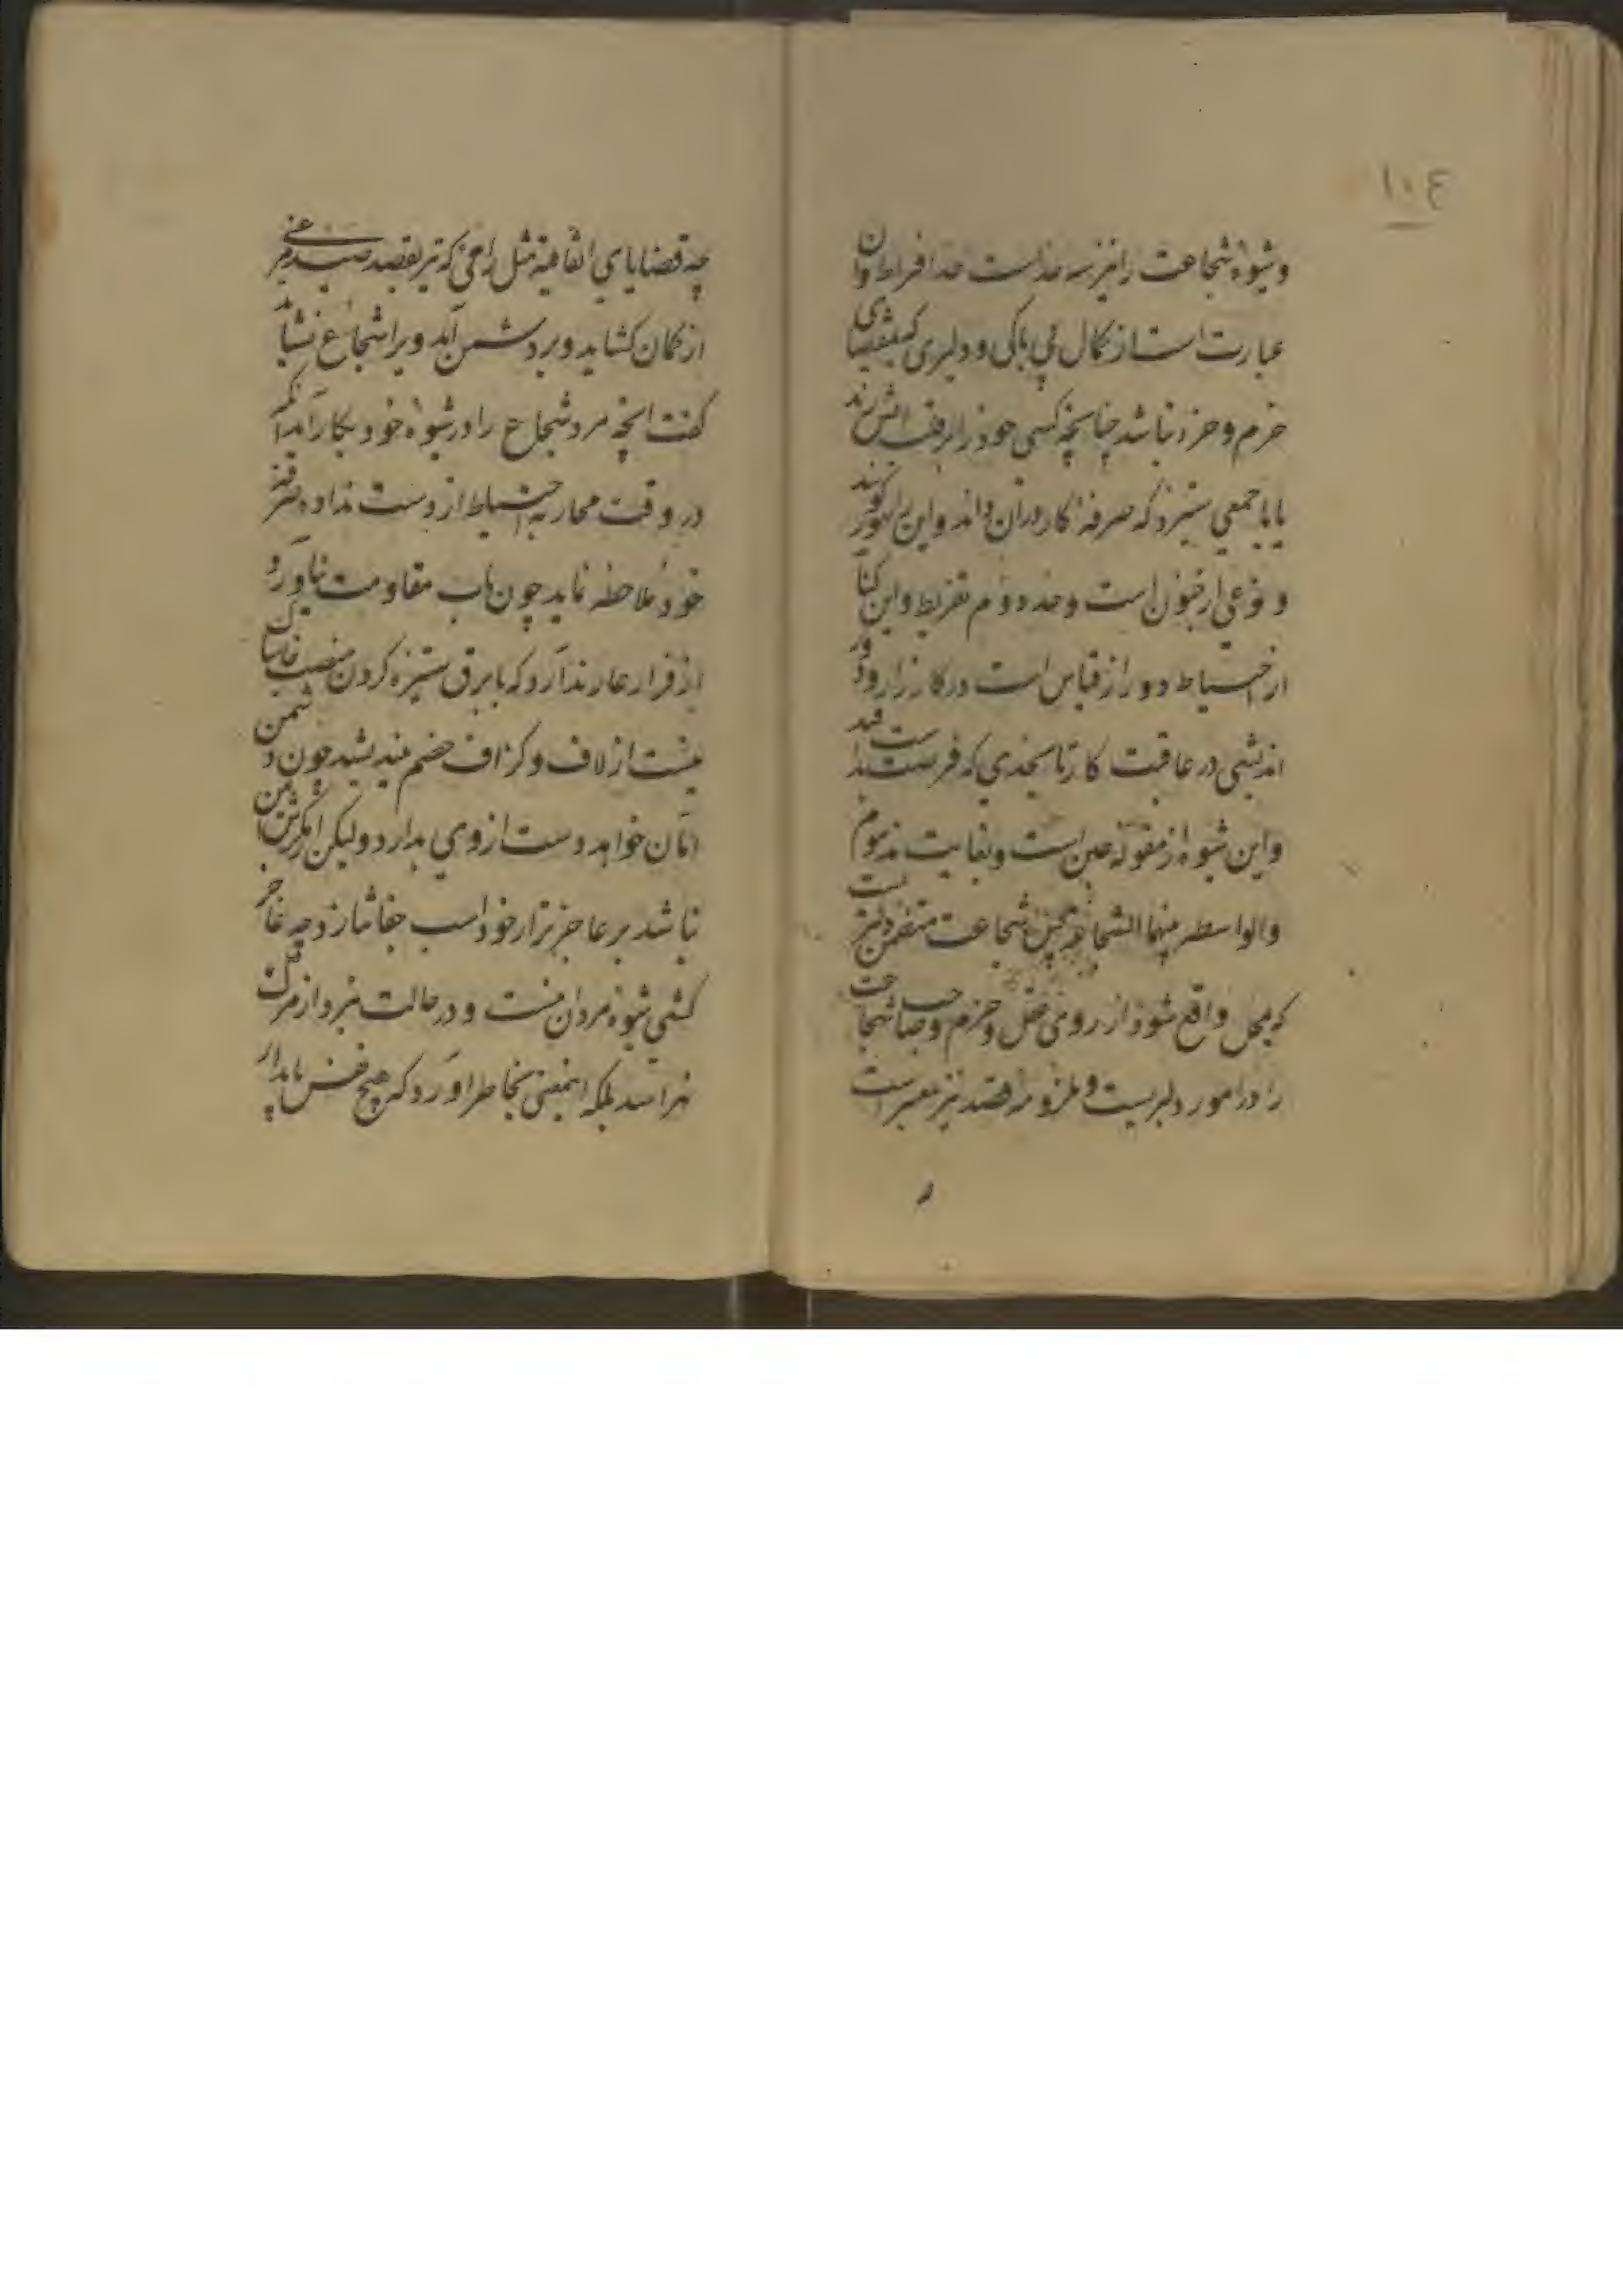 ١٠٤
وشیوه شجاعت را نیز سه حد است حد افراط وان
عبارت است از کمال بی باکی و دلیری که بمقتضای
حزم و حزد نباشد چنانچه کسی خود را در آتش زند
یا با جمعی ستیزد که صرفه کار دران داند و این را تهور گویند
و نوعی از جنون است و حد دوم تفریط و این کنا
از احتیاط دور از قیاس است در کار زار و دور
اندیشی در عاقبت کار تا بحدی که فرصت بدهد
و این شیوه از مقوله جبن است و بغایت مذموم
والواسطه بینهما الشجاعة شجاعت متضمن است
که بمحل واقع شود از روی عقل و حزم و صاحب شجاعت
را در امور دلیریست و قصد نیز معتبر است
چه قضایای اتفاقیه مثل رامی که تیر بقصد صید مرغی
از کمان کشاید و بر دشمن آید ویرا شجاع نشاید
گفت انچه مرد شجاع را در شیوه خود بکار آید آنکه
در وقت محاربه احتیاط از دست نداده صرفه
خود ملاحظه نماید چون تاب مقاومت نیاورد
از فرار عار ندارد که با برق ستیزه کردن منصب خاشاک
نیست از لاف و گزاف خصم نیندیشد چون دشمن
امان خواهد دست از وی بدارد ولیکن ایمن
نباشد بر عاجزتر از خود اسب جفا نتازد چه عاجز
کشی شیوه مردان نیست و در حالت نبرد از مرگ
نهراسد بلکه اینمعنی بخاطر آورد که هیچ نفس پایدار